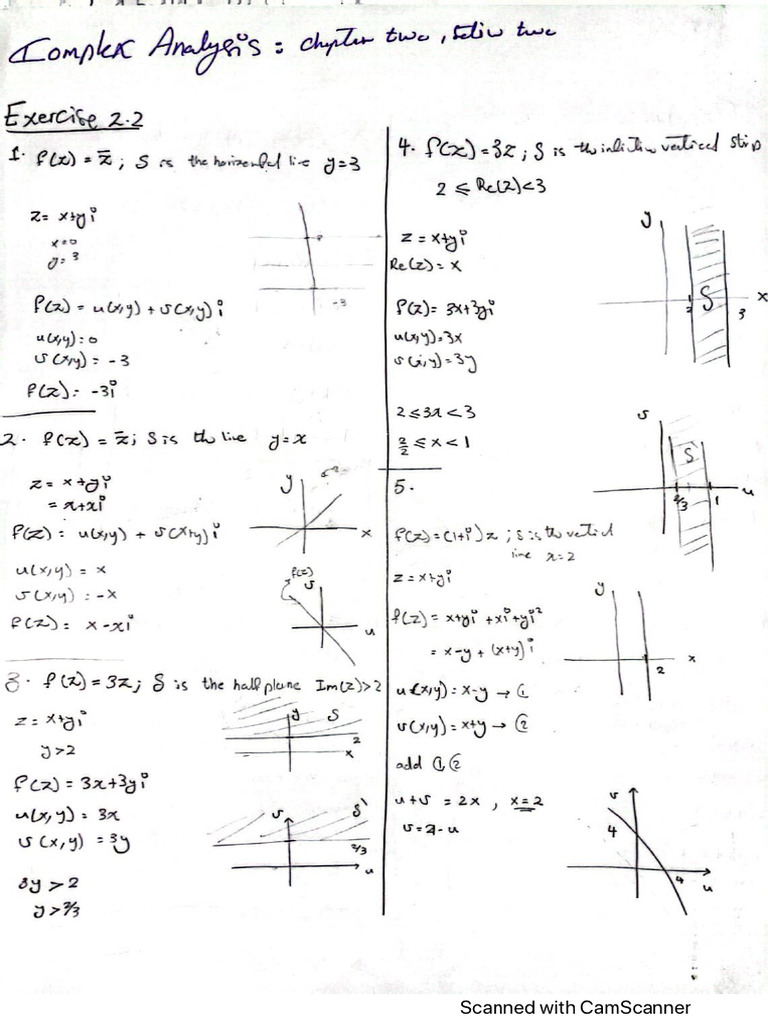 Complex Analysis : chapter two, section two
Exercise 2.2
1. f(z) = z̄ ; S is the horizontal line y=3
z = x+yi
x=0
y=3
-3
f(z) = u(x,y) + v(x,y) i
u(x,y) = 0
v(x,y) = -3
f(z) = -3i
2. f(z) = z̄ ; S is the line y=x
z = x+yi
= x+xi
y
x
f(z) = u(x,y) + v(x+y) i
u(x,y) = x
v(x,y) = -x
f(z) = x-xi
f(z)
v
u
3. f(z) = 3z ; S is the half plane Im(z)>2
z = x+yi
y>2
y S
2
x
f(z) = 3x+3yi
u(x,y) = 3x
v(x,y) = 3y
v S'
2/3
u
3y > 2
y > 2/3
4. f(z)=3z ; S is the infinite vertical strip
2 ≤ Re(z)<3
z = x+yi
Re(z) = x
y
S
x
2 3
f(z) = 3x+3yi
u(x,y)=3x
v(x,y)=3y
2≤3x<3
≤ x < 1
v
S
u
2/3 1
5.
f(z)=(1+i)z ; S is the vertical
line x=2
z = x+yi
f(z) = x+yi+xi+yi²
= x-y + (x+y)i
y
x
2
u(x,y) = x-y → ①
v(x,y) = x+y → ②
add ①,②
u+v = 2x , x=2
v=4-u
v
4
4
u
Scanned with CamScanner